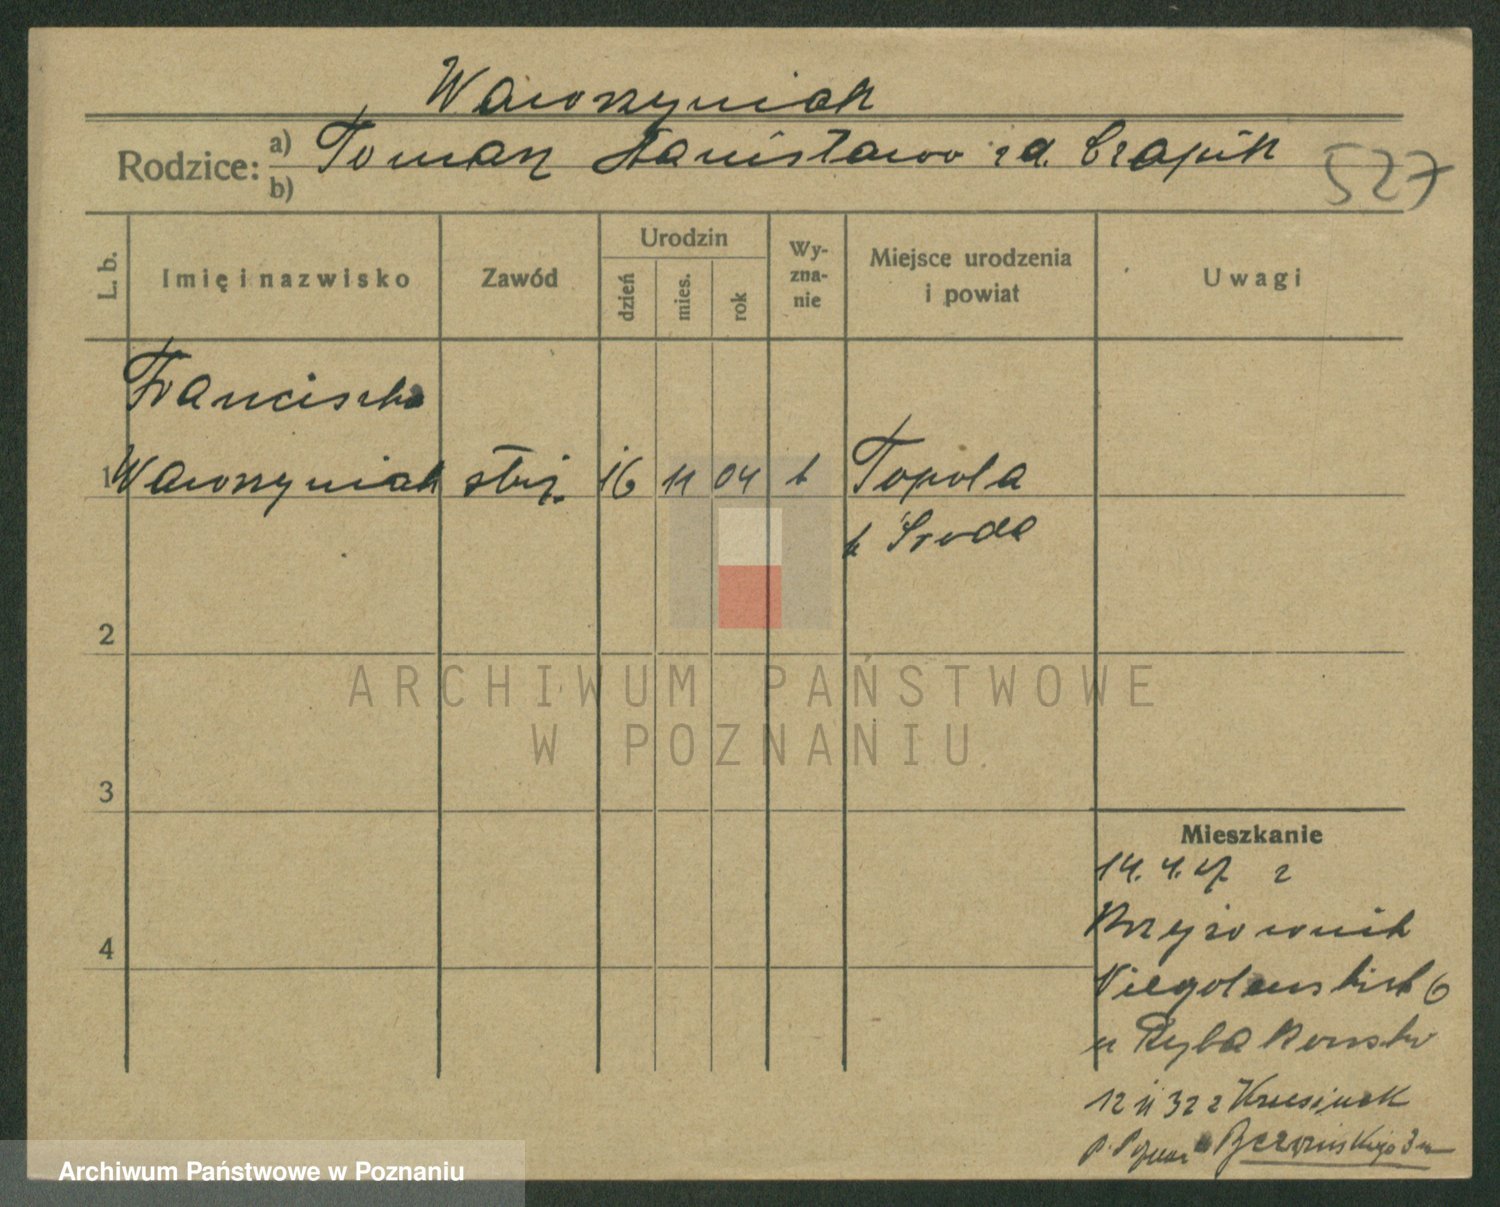 Wawrzyniak
Rodzice: a) Tomasz Stanisława zd. Czapik
b)
527
L. b. Imię i nazwisko Zawód Urodzin dzień mies. rok Wy-zna-nie Miejsce urodzenia i powiat Uwagi
Franciszka
1 Wawrzyniak służ. 16 11 04 k Topola
k Środa
2
ARCHIWUM PAŃSTWOWE
W POZNANIU
3
Mieszkanie
14. 4. 27 z
4
Niegolewskich 6
u Ryba
12 11 32 z Krzesinek
3
Archiwum Państwowe w Poznaniu